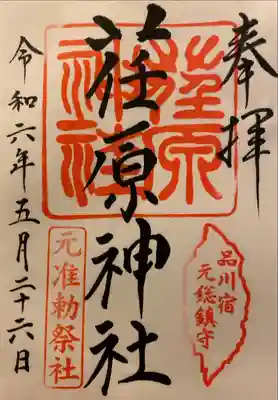 奉拝
品川宿
元総鎮守
荏原神社
荏原
神社
元准勅祭社
令和六年五月二十六日